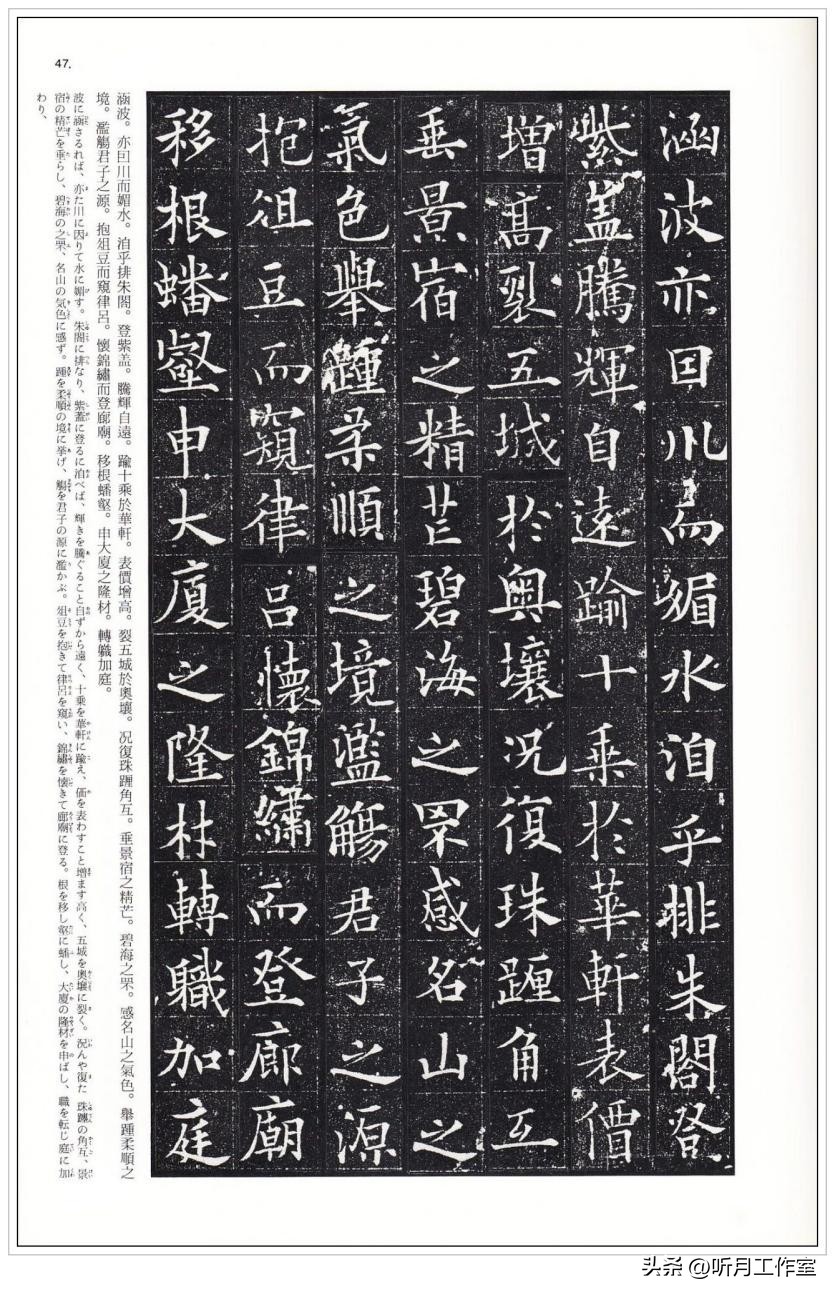 47.
涵波亦囙川而媚水洎乎排朱閣登
紫盖騰輝自遠踰十乗於華軒表價
増高裂五城於奥壤况復珠躔角互
垂景宿之精芒碧海之罘感名山之
氣色舉踵柔順之境濫觴君子之源
抱俎豆而窺律呂懷錦繡而登廊廟
移根蟠壑申大廈之隆材轉職加庭
涵波。亦囙川而媚水。洎乎排朱閣。登紫盖。騰輝自遠。踰十乗於華軒。表價増高。裂五城於奥壤。况復珠躔角互。垂景宿之精芒。碧海之罘。感名山之氣色。舉踵柔順之
境。濫觴君子之源。抱俎豆而窺律呂。懷錦繡而登廊廟。移根蟠壑。申大廈之隆材。轉軄加庭。
波に涵さるれば、亦た川に因りて水に媚す。朱閣に排なり、紫蓋に登るに洎べば、輝きを騰ぐること自ずから遠く、十乗を華軒に踰え、価を表わすこと増ます高く、五城を奥壤に裂く。況んや復た 珠躔の角互、景
宿の精芒を垂らし、碧海の之罘、名山の気色に感ず。踵を柔順の境に挙げ、觴を君子の源に濫かぶ。俎豆を抱きて律呂を窺い、錦繡を懐きて廊廟に登る。根を移し壑に蟠し、大廈の隆材を申ばし、職を転じ庭に加
わり、
头条 @听月工作室